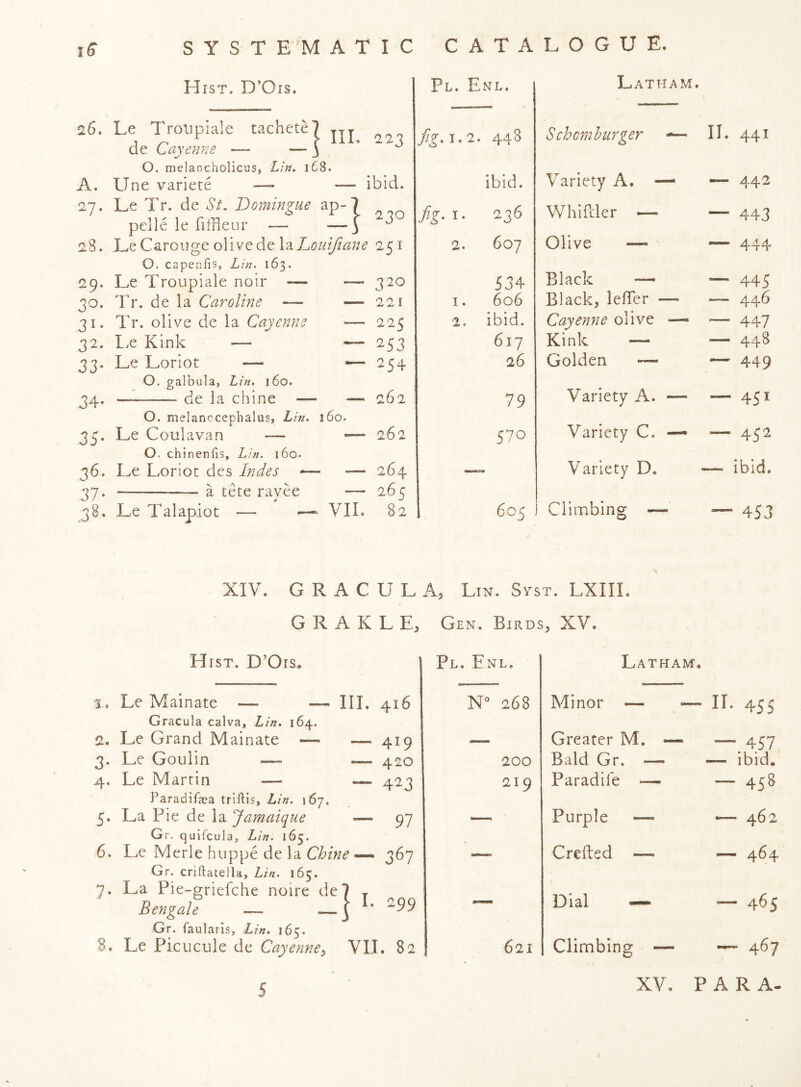 16 SYSTEMATIC CATALOGUE.
HIST. D'OIS. PL. ENL. LATHAM.
26. Le Troupiale tachetè } III. 223 fig. 1. 2. 448 Schomburger — II. 441
de Cayenne — — }
O. melancholicus, Lin. 168.
A. Une varieté — — ibid. ibid. Variety A. — — 442
27. Le Tr. de St. Domingue ap- } 230 fig. 1. 236 Whiſtler — — 443
pellé le ſiffleur — — }
28. Le Carouge olive de la Louiſiane 251 2. 607 Olive — — 444
O. capenſis, Lin. 163.
29. Le Troupiale noir — — 320 534 Black — — 445
30. Tr. de la Caroline — — 221 1. 606 Black, leſſer — — 446
31. Tr. olive de la Cayenne — 225 2. ibid. Cayenne olive — — 447
32. Le Kink — — 253 617 Kink — — 448
33. Le Loriot — — 254 26 Golden — — 449
O. galbula, Lin. 160.
34. ——— de la chine — — 262 79 Variety A. — — 451
O. melanocephalus, Lin. 160.
35. Le Coulavan — — 262 570 Variety C. — — 452
O. chinenſis, Lin. 160.
36. Le Loriot des Indes — — 264 — Variety D. — ibid.
37. ——— à tête rayèe — 265
38. Le Talapiot — — VII. 82 605 Climbing — — 453
XIV. GRACULA, LIN. SYST. LXIII.
GRAKLE, GEN. BIRDS, XV.
HIST. D'OIS. PL. ENL. LATHAM.
1. Le Mainate — — III. 416 N° 268 Minor — — II. 455
Gracula calva, Lin. 164.
2. Le Grand Mainate — — 419 — Greater M. — — 457
3. Le Goulin — — 420 200 Bald Gr. — — ibid.
4. Le Martin — — 423 219 Paradiſe — — 458
Paradiſæa triſtis, Lin. 167.
5. La Pie de la Jamaique — 97 — Purple — — 462
Gr. quiſcula, Lin. 165.
6. Le Merle huppé de la Chine — 367 — Creſted — — 464
Gr. criſtatella, Lin. 165.
7. La Pie-grieſche noire de } I. 299 — Dial — — 465
Bengale — — }
Gr. ſaularis, Lin. 165.
8. Le Picucule de Cayenne, VII. 82 621 Climbing — — 467
5 XV. PARA-